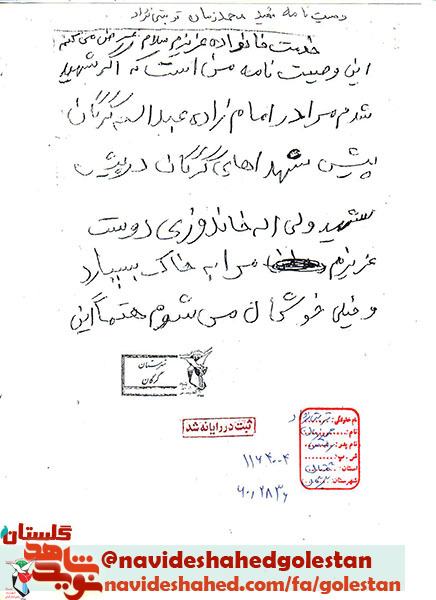 وصیت نامه شهید محمدزمان تربتی نژاد
خدمت خانواده عزیزم سلام عرض می کنیم
این وصیت نامه من است که اگر شهید
شدم مرا در امام زاده عبداله گرگان
پیش شهداهای گرگان در پیش
شهید ولی اله خاندوزی دوست
عزیزم مرا به خاک بسپارد
و خیلی خوشحال می شوم حتماً این
شهرستان
گرگان
ثبت در رایانه شد
نام خانوادگی:
نام:
نام پدر:
ش . پ:
استان:
شهرستان:
۱۱۶۴۰۰۴
۶۰،۲۸۳۶
گلستان
نوید شاهد
@navideshahedgolestan
navideshahed.com/fa/golestan